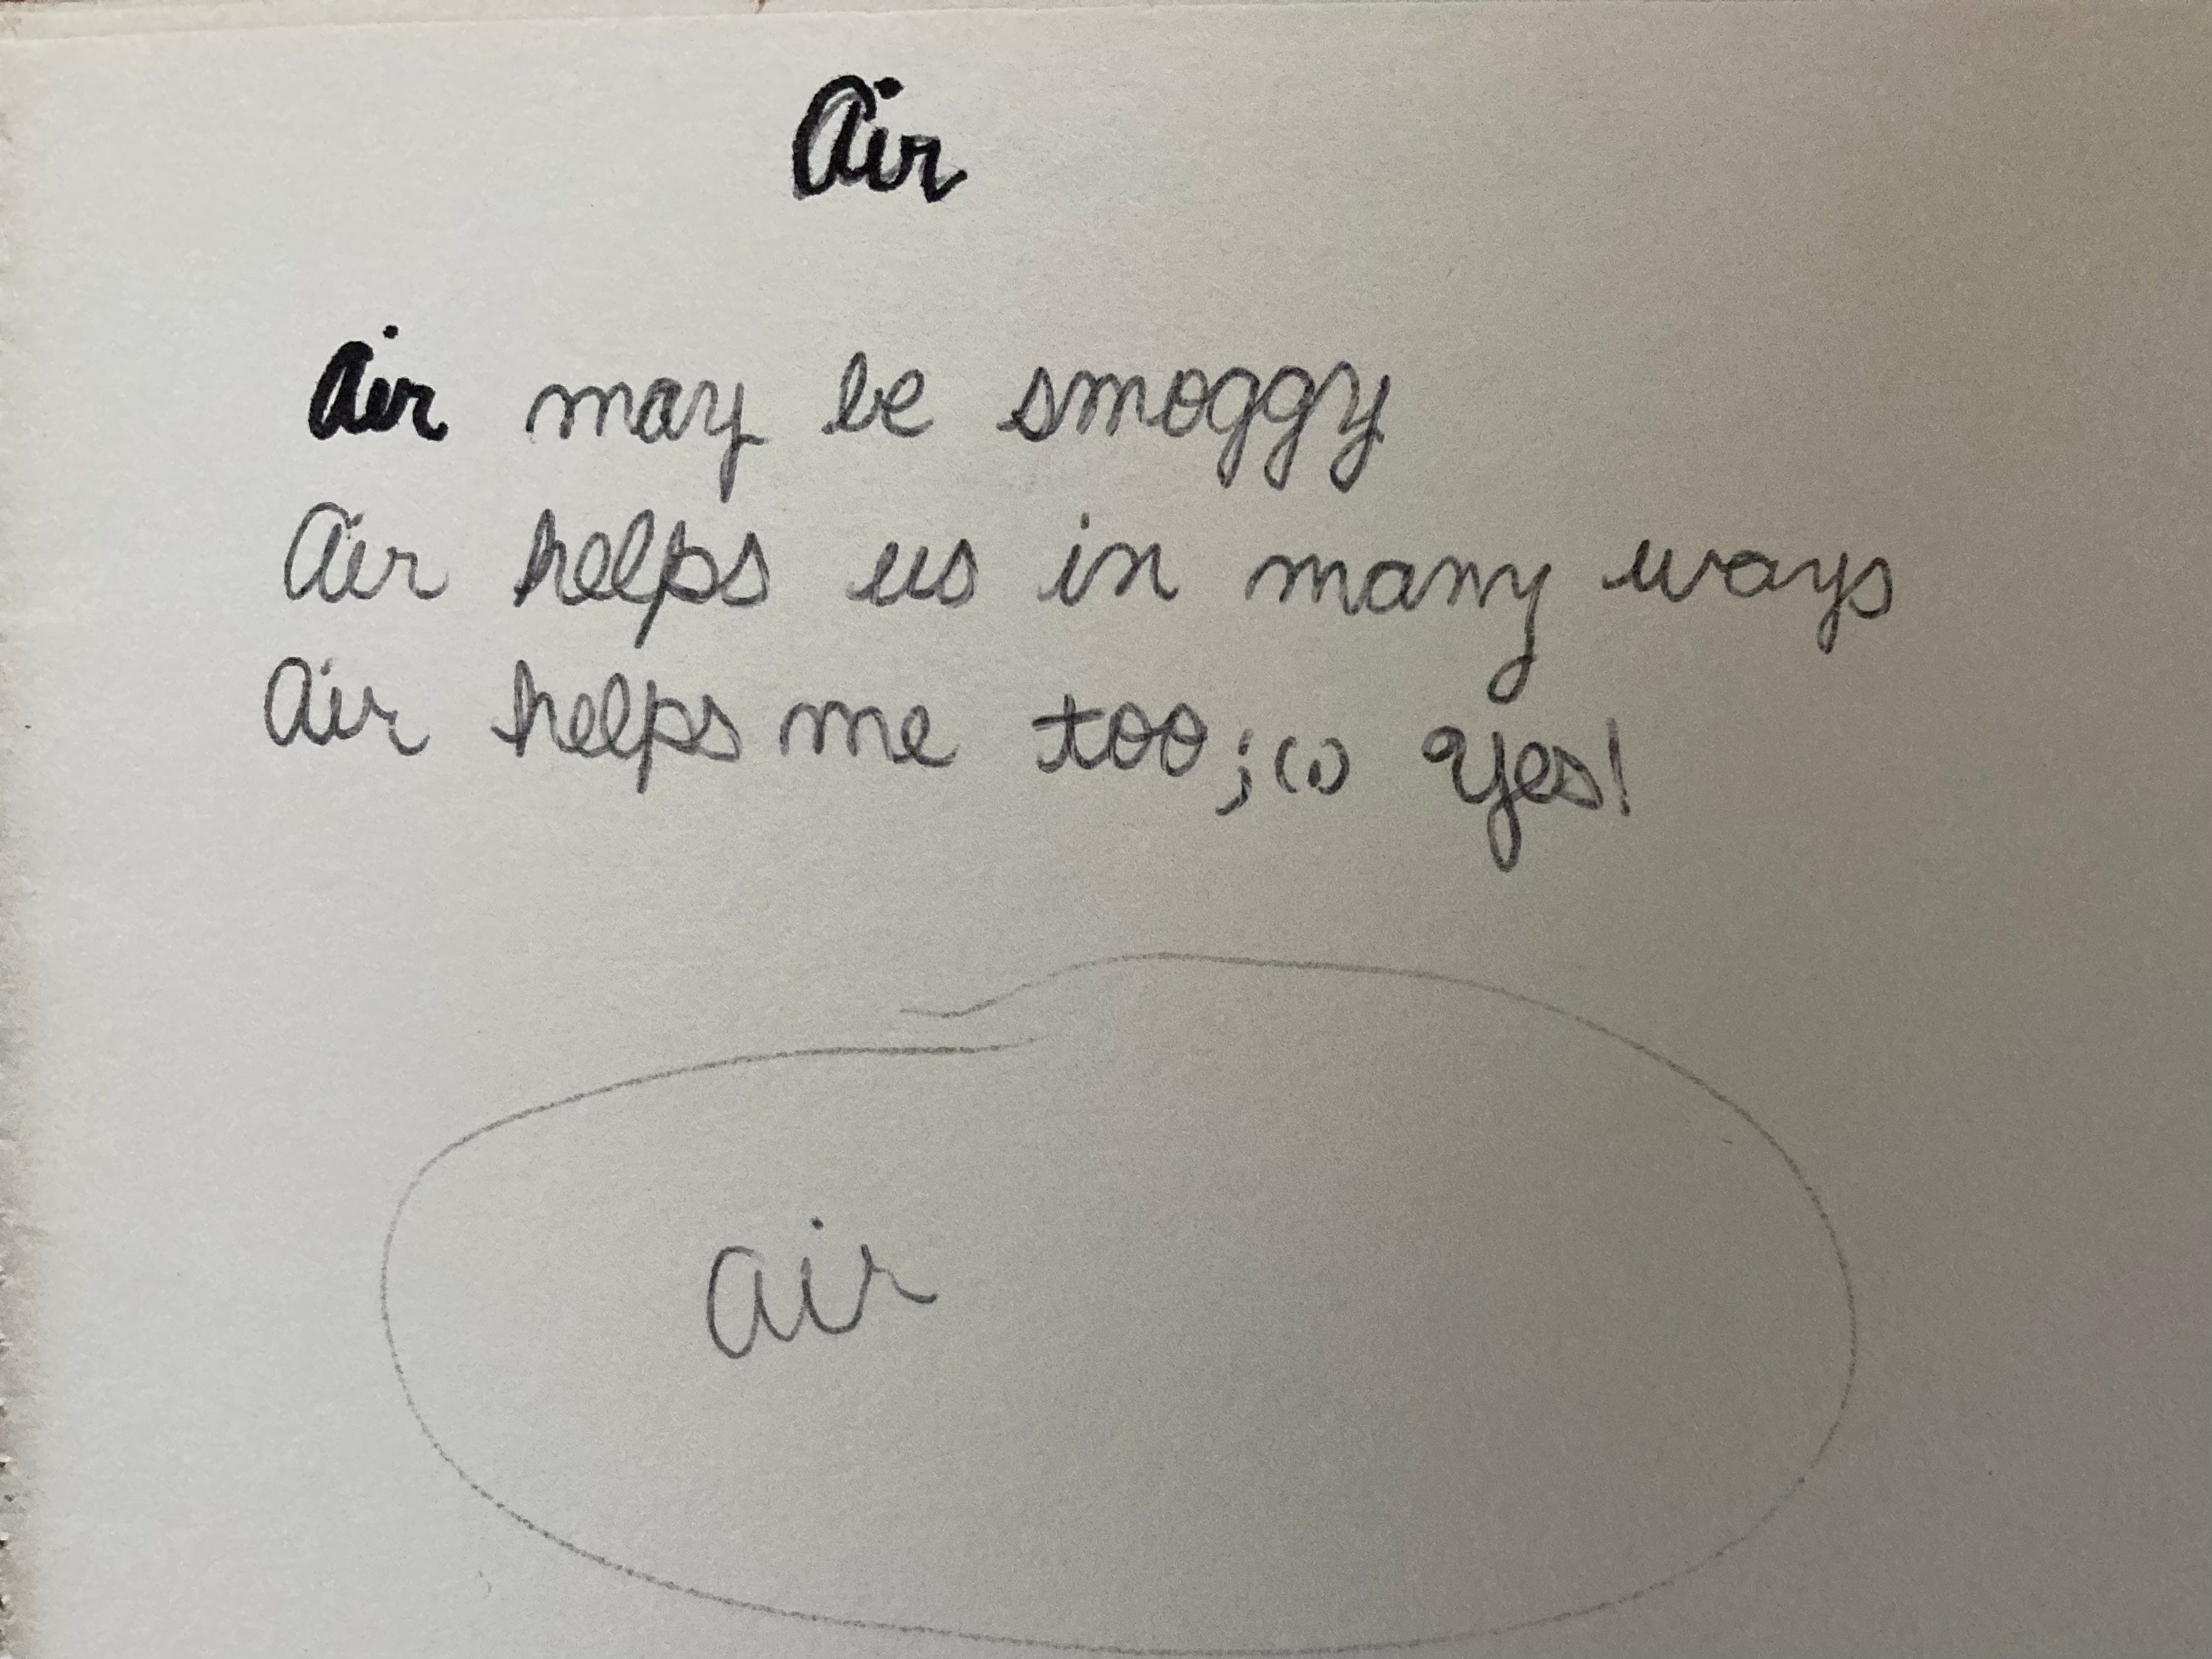 Air
Air may be smoggy
Air helps us in many ways
Air helps me too; Yes!
air